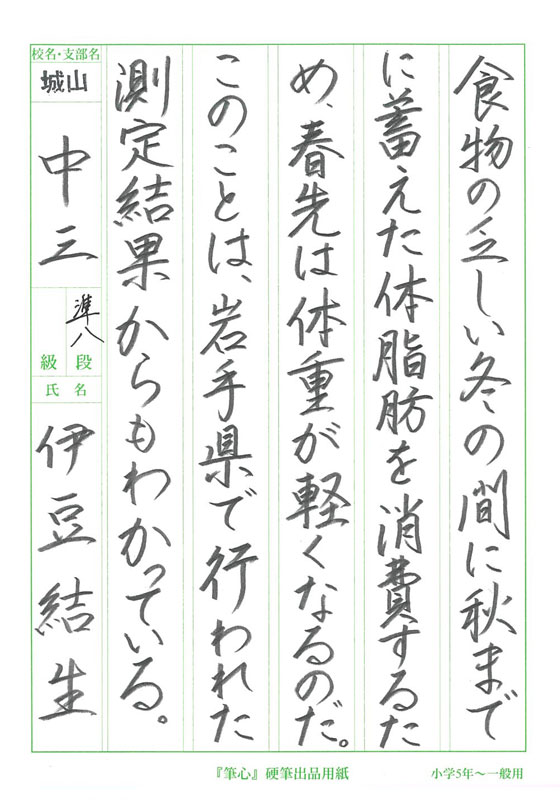 食物の乏しい冬の間に秋まで
に蓄えた体脂肪を消費するた
め、春先は体重が軽くなるのだ。
このことは、岩手県で行われた
測定結果からもわかっている。
校名・支部名
城山
中三
準八
段
級
氏名
伊豆結生
『筆心』硬筆出品用紙
小学5年〜一般用